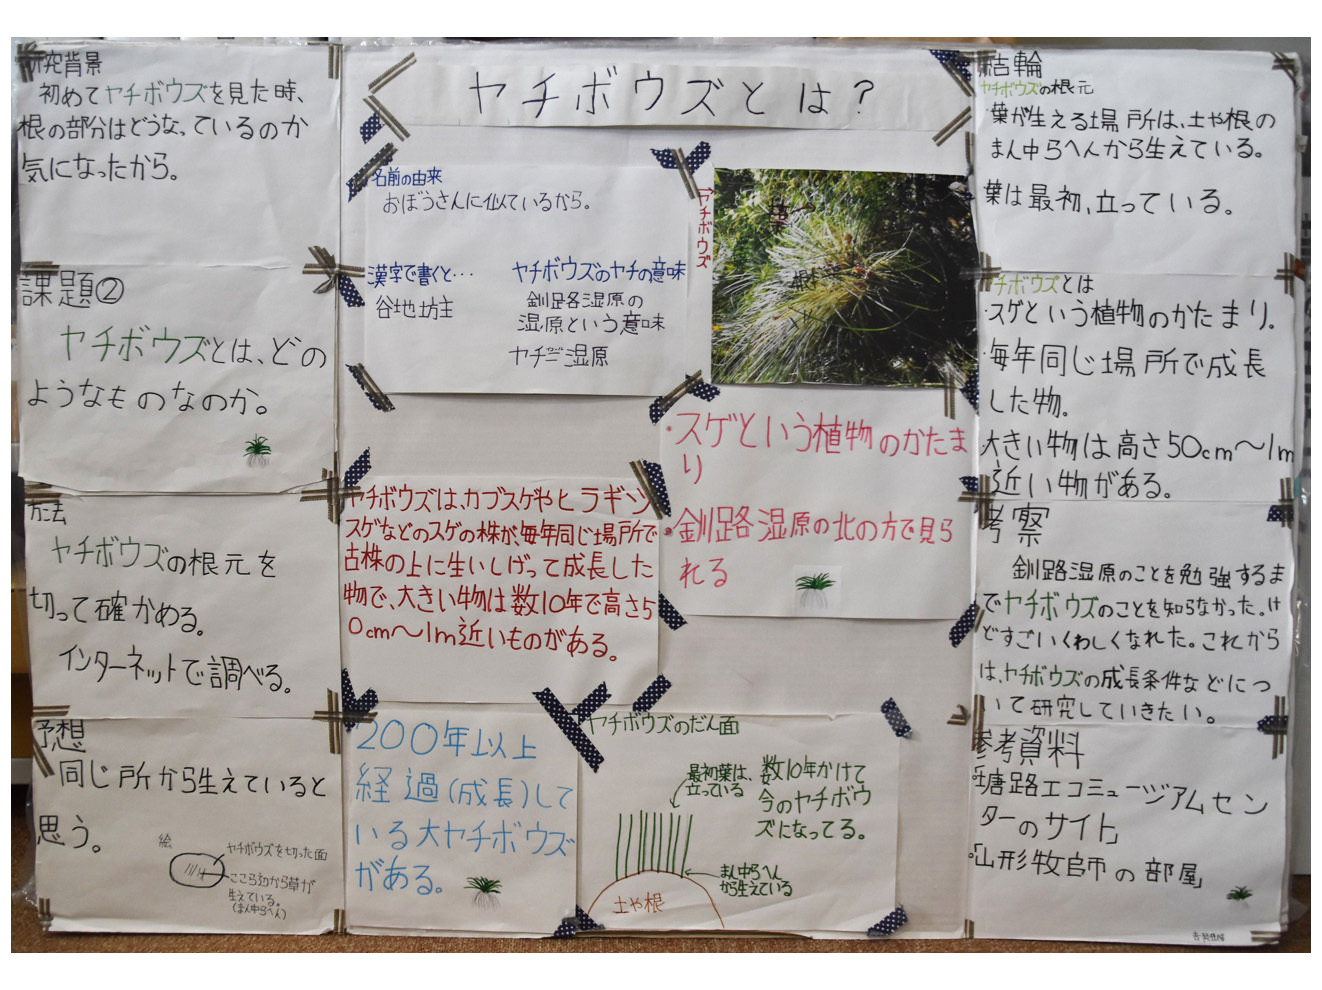 研究背景
初めてヤチボウズを見た時、
根の部分はどうなっているのか
気になったから。
課題②
ヤチボウズとは、どの
ようなものなのか。
方法
ヤチボウズの根元を
切って確かめる。
インターネットで調べる。
予想
同じ所から生えていると
思う。
絵
ヤチボウズを切った面
ここら辺から草が
生えている。
(まん中らへん)
ヤチボウズとは?
名前の由来
おぼうさんに似ているから。
漢字で書くと・・・
谷地坊主
ヤチボウズのヤチの意味
釧路湿原の
湿原という意味
ヤチ=湿原
ヤチボウズ
葉
根
・スゲという植物のかたま
り
・釧路湿原の北の方で見ら
れる
ヤチボウズは、カブスゲやヒラギシ
スゲなどのスゲの株が、毎年同じ場所で
古株の上に生いしげって成長した
物で、大きい物は数10年で高さ5
0cm〜1m近いものがある。
200年以上
経過(成長)して
いる大ヤチボウズ
がある。
ヤチボウズのだん面
最初葉は、
立っている
数10年かけて
今のヤチボウ
ズになってる。
まん中らへん
から生えている
土や根
結輪
ヤチボウズの根元
・葉が生える場所は、土や根の
まん中らへんから生えている。
・葉は最初、立っている。
ヤチボウズとは
・スゲという植物のかたまり。
・毎年同じ場所で成長
した物。
・大きい物は高さ50cm〜1m
近い物がある。
考察
釧路湿原のことを勉強するま
でヤチボウズのことを知らなかった。け
どすごいくわしくなれた。これから
は、ヤチボウズの成長条件などにつ
いて研究していきたい。
参考資料
「塘路エコミュージアムセン
ターのサイト」
「山形牧師の部屋」